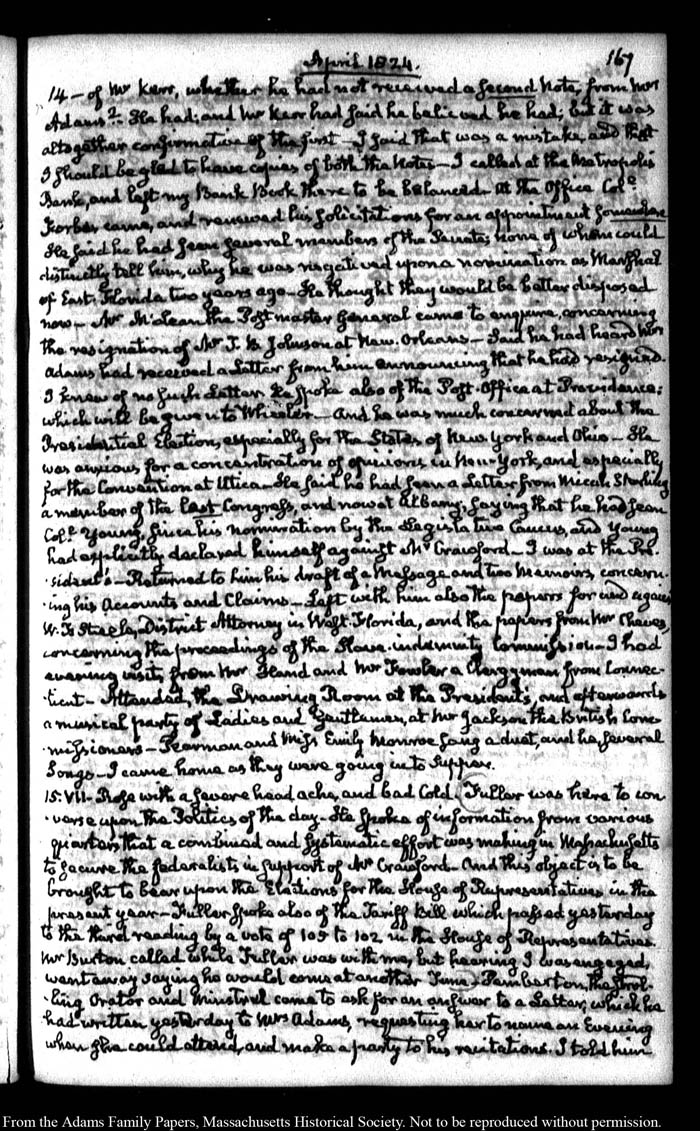 April 1824.
167
14 — of Mr Kerr, whether he had not received a second Note, from Mr
Adams? He had; and Mr Kerr had said he believed he had; but it was
altogether confirmative of the first — I said that was a mistake, and that
I should be glad to have copies of both the Notes — I called at the Metropolis
Bank, and left my Bank Book there to be balanced. At the Office Col.
Forbes came, and renewed his solicitations for an appointment somewhere
He said he had seen several members of the Senate; none of whom could
distinctly tell him, why he was negatived upon a nomination as Marshal
of East-Florida two years ago — He thought they would be better disposed
now — Mr McLean the Post master General came to enquire, concerning
the resignation of Mr J. B Johnson at New-Orleans — Said he had heard Mr
Adams had received a Letter from him announcing that he had resigned.
I knew of no such Letter. He spoke also of the Post-Office at Providence;
which will be given to Wheeler — And he was much concerned about the
Presidential Election, especially for the States of New York and Ohio — He
was anxious for a concentration of opinions in New-York, and especially
for the Convention at Utica — He said he had seen a Letter from Micah Sterling
a member of the last Congress, and now at Albany, saying that he had seen
Col. Young, since his nomination by the Legislative Caucus, and Young
had explicitly declared himself against Mr Crawford — I was at the Pre-
-sident's — Returned to him his draft of a Message and two Memoirs, concern-
-ing his Accounts and Claims — Left with him also the papers for and against
W. F. Steele, District Attorney in West-Florida, and the papers from Mr Cheves,
concerning the proceedings of the Slave-indemnity Commission — I had
evening visits from Mr Hand and Mr Fowler a Clergyman from Connec-
-ticut — Attended, the Drawing Room at the President's, and afterwards
a musical party of Ladies and Gentlemen, at Mr Jackson the British Com-
-missioners — Pearman and Miss Emily Monroe sang a duet, and he, several
Songs — I came home as they were going in to supper.
15. VII. Rose with a severe head ache, and bad Cold. Fuller was here to con-
-verse upon the Politics of the day — He spoke of information from various
quarters that a combined and systematic effort was making in Massachusetts
to secure the federalists in support of Mr Crawford — And this object is to be
brought to bear upon the Elections for the House of Representatives in the
present year — Fuller spoke also of the Tariff Bill which passed yesterday
to the third reading by a vote of 105 to 102 in the House of Representatives.
Mr Burton called while Fuller was with me, but hearing I was engaged,
went away saying he would come at another Time — Pemberton, the strol-
-ling Orator and Minstrel came to ask for an answer to a Letter, which he
had written yesterday to Mrs Adams, requesting her to name an Evening
when she could attend, and make a party to his recitations. I told him
From the Adams Family Papers, Massachusetts Historical Society. Not to be reproduced without permission.